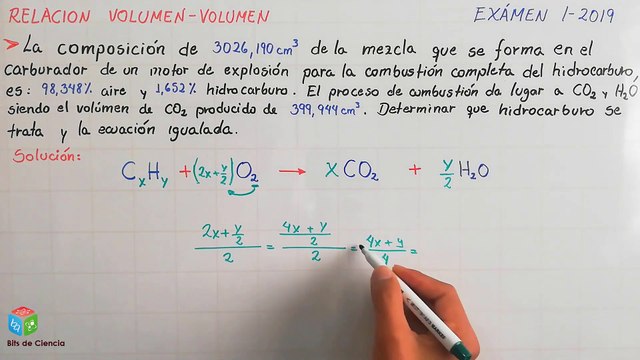 RELACION VOLUMEN-VOLUMEN EXÁMEN 1-2019
➤La composición de 3026,190 cm³ de la mezcla que se forma en el
carburador de un motor de explosión para la combustión completa del hidrocarburo,
es: 98,348% aire y 1,652% hidrocarburo. El proceso de combustión da lugar a CO₂ y H₂O
siendo el volúmen de CO₂ producido de 399,944 cm³. Determinar que hidrocarburo se
trata y la ecuación igualada.
Solución:
CxHy + (2x+y/2)O₂ → XCO₂ + y/2 H₂O
(2x+y/2)/2 = ((4x+y)/2)/2 = (4x+y)/4 =
Bits de Ciencia